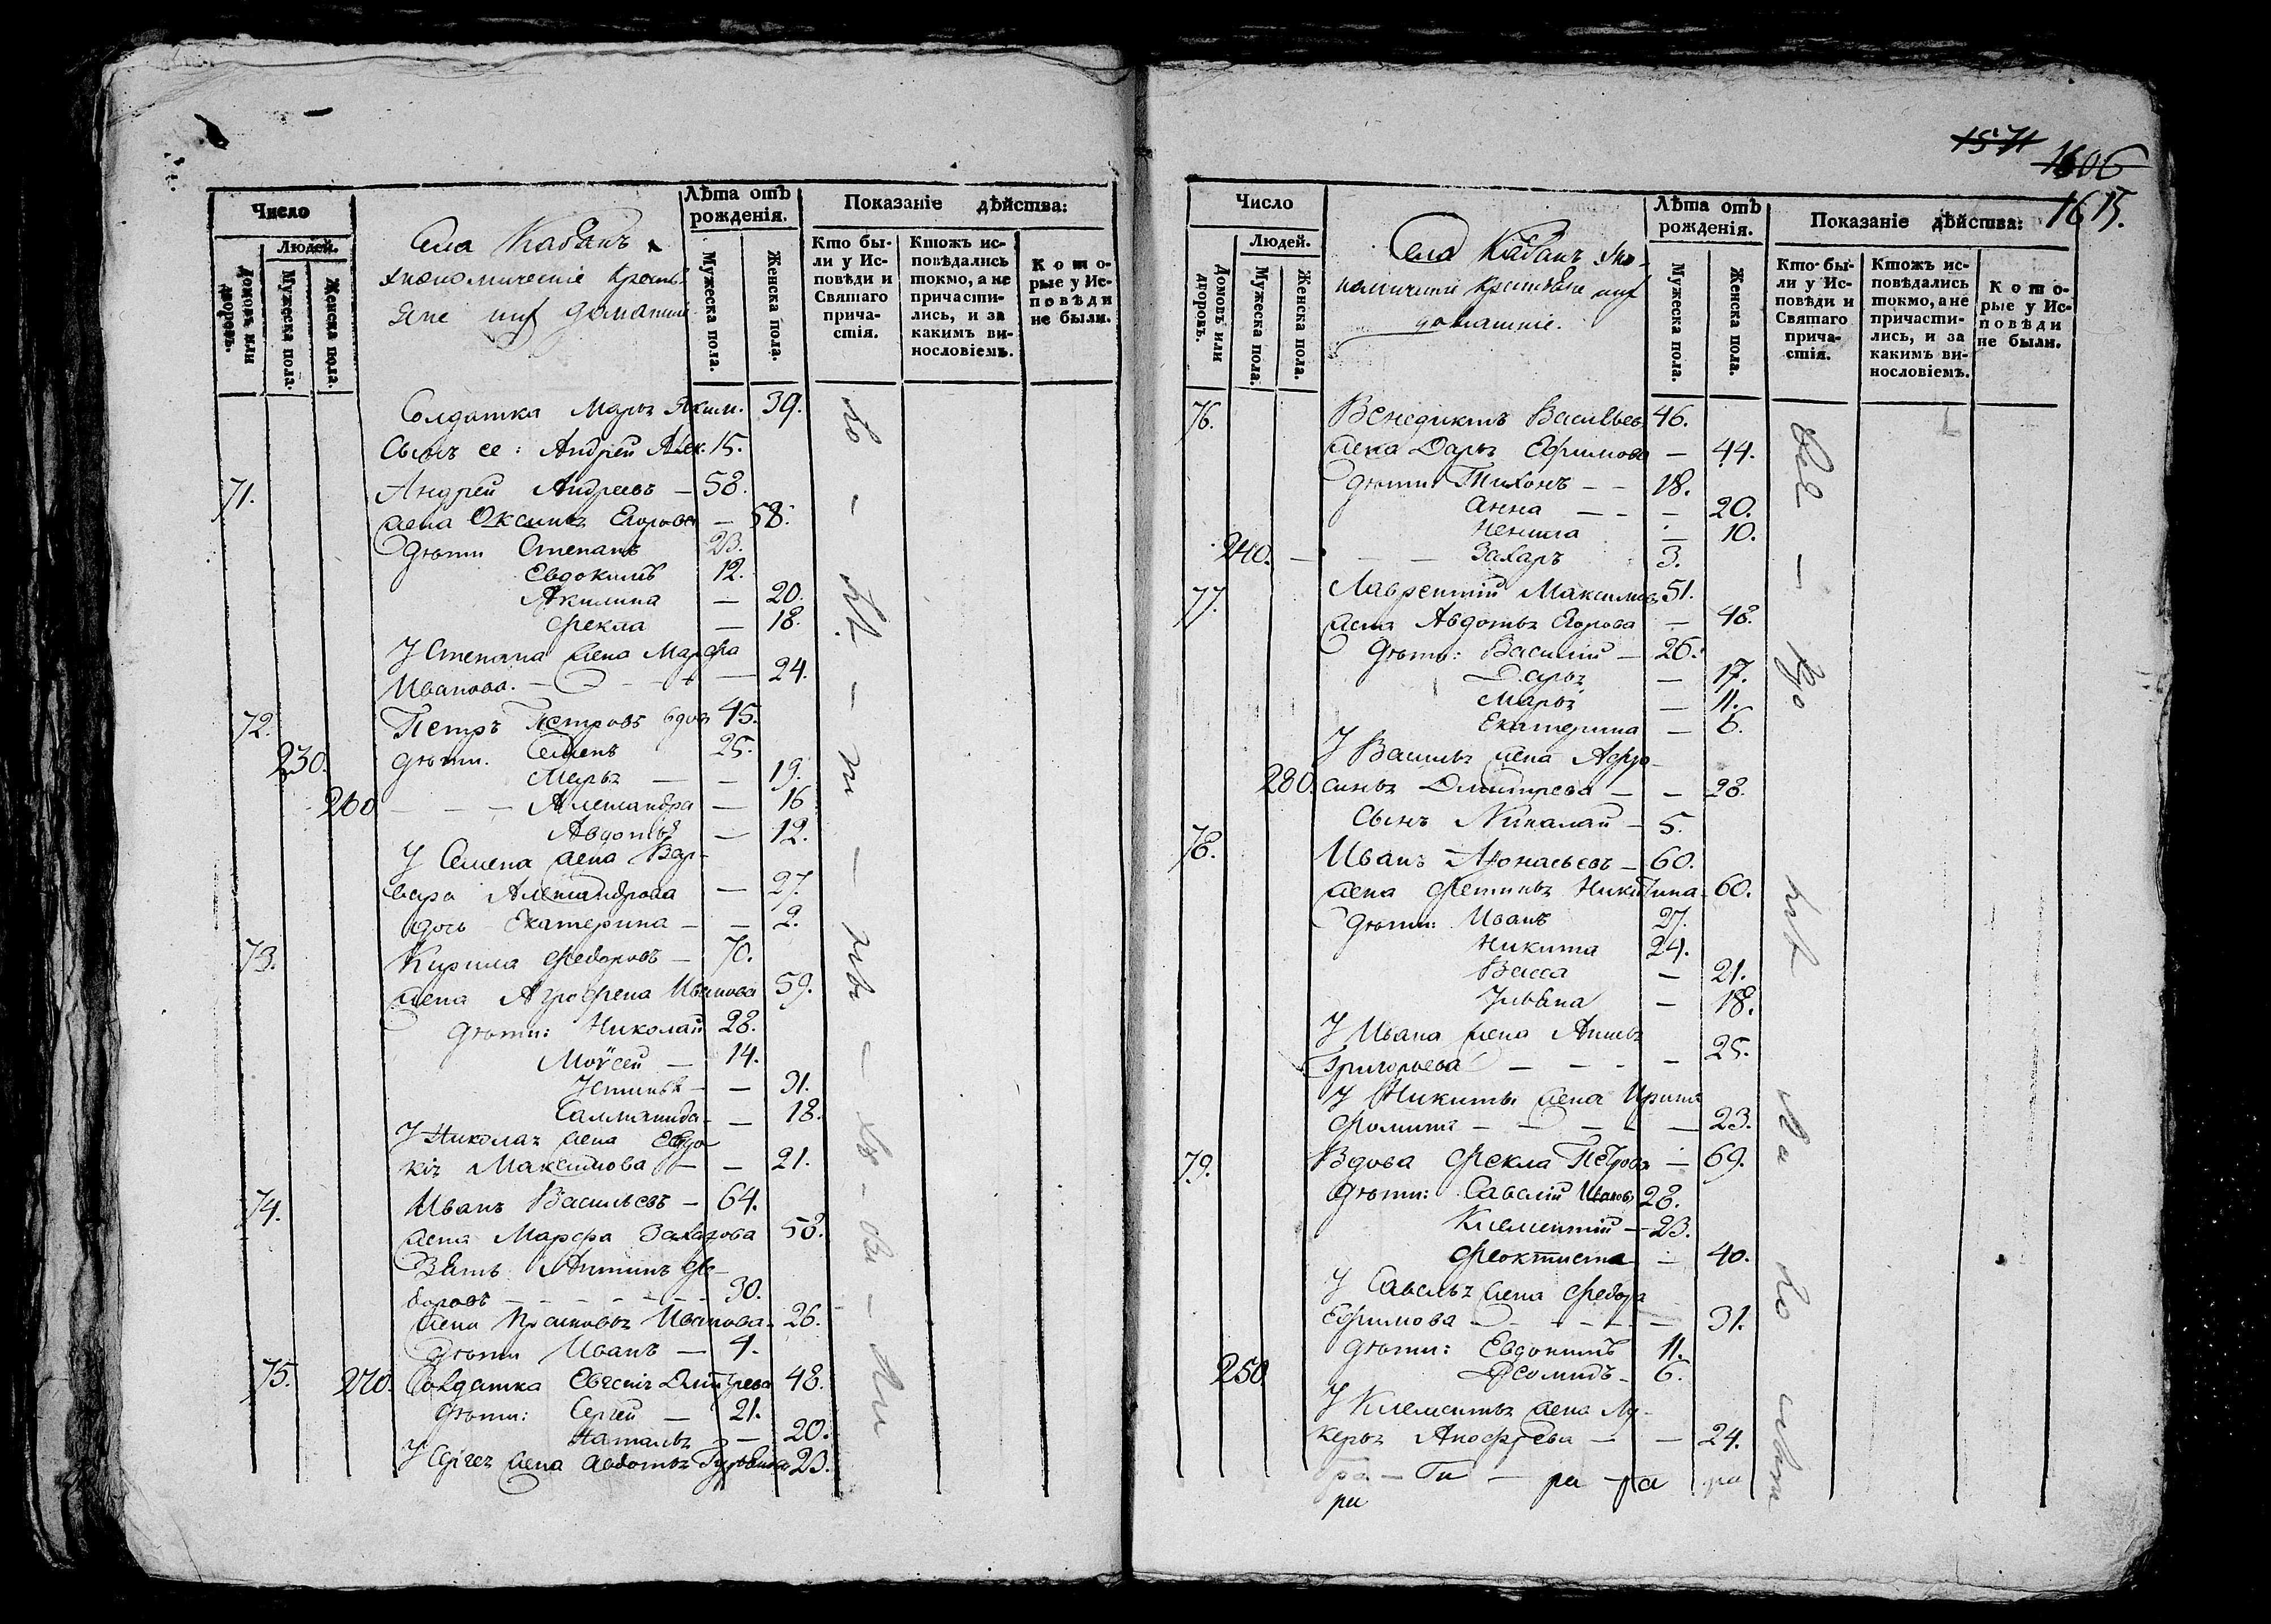 Число
Людей.
Домовъ или дворовъ.
Мужеска пола.
Женска пола.
Села Кабанъ
Экономическіе крестьяне
Лѣта отъ рожденія.
Мужеска пола.
Женска пола.
Показаніе дѣйства:
Кто бы-
ли у Ис-
повѣди и
Святаго
прича-
стія.
Ктожъ ис-
повѣдались
токмо, а не
причасти-
лись, и за
какимъ ви-
нословіемъ.
Кото-
рые у Ис-
повѣди
не были.
Солдатка Марья Яким. 39.
Сынъ ее: Андрей Алек. 15.
71. Андрей Андреевъ — 58.
жена Оксинья Егорова — 58.
дѣти Степанъ 23.
Евдокимъ 12.
Акилина — 20.
Фекла — 18.
У Степана жена Марфа
Иванова. — 24.
72. Петръ Петровъ вдов 45.
230. дѣти. Семенъ 25.
Марья — 19.
260 — Александра — 16
Авдотья — 12.
У Семена жена Вар-
вара Александрова — 27.
дочь Екатерина — 2.
73. Кирила Федоровъ — 70.
жена Агрофена Иванова 59.
дѣти: Николай 28.
Моѵсей — 14.
Устинья — 31.
— 18.
У Николая жена Евдо-
кія Максимова — 21.
74. Иванъ Васильевъ — 64.
жена Марфа Захарова 58.
Зять Антипъ Фе-
доровъ — 30.
жена Иванова — 26.
дѣти Иванъ — 4.
75. 270. Солдатка Евгенія Дмитрева 48.
дѣти: Сергей — 21.
Наталья — 20.
У Сергея жена Авдотья 23.
1571
1606
1615.
Число
Людей.
Домовъ или дворовъ.
Мужеска пола.
Женска пола.
Села Кабанъ Эко-
номическіе крестьяне
домашніе.
Лѣта отъ рожденія.
Мужеска пола.
Женска пола.
Показаніе дѣйства:
Кто бы-
ли у Ис-
повѣди и
Святаго
прича-
стія.
Ктожъ ис-
повѣдались
токмо, а не
причасти-
лись, и за
какимъ ви-
нословіемъ.
Кото-
рые у Ис-
повѣди
не были.
76. Венедиктъ Васильев 46.
жена Дарья Ефимова — 44.
дѣти Тихонъ — 18.
Анна — 20.
Ненила — 10.
240. — Захаръ 3.
77. Лаврентій Максимов 51.
жена Авдотья Егорова — 48.
дѣти: Василій — 26.
Дарья — 17.
Марья — 11.
Екатерина — 6.
У Василья жена Афро-
280. синья Дмитрева — 28.
Сынъ Николай — 5.
78. Иванъ Афонасьевъ — 60.
жена Фетинья Никитина 60.
дѣти: Иванъ 27.
Никита 24.
Васса — 21.
Ульяна — 18.
У Ивана жена Анисья
Григорьева — 25.
У Никиты жена Ирина
Фомина — 23.
79. Вдова Фекла Петрова — 69.
дѣти: Савелій Иванов 28.
Клементій — 23.
Феоктиста — 40.
У Савелья жена Федора
Ефимова — 31.
дѣти: Евдокимъ 11.
250. Деомидъ — 6.
У Клементья жена Лу-
керья — 24.